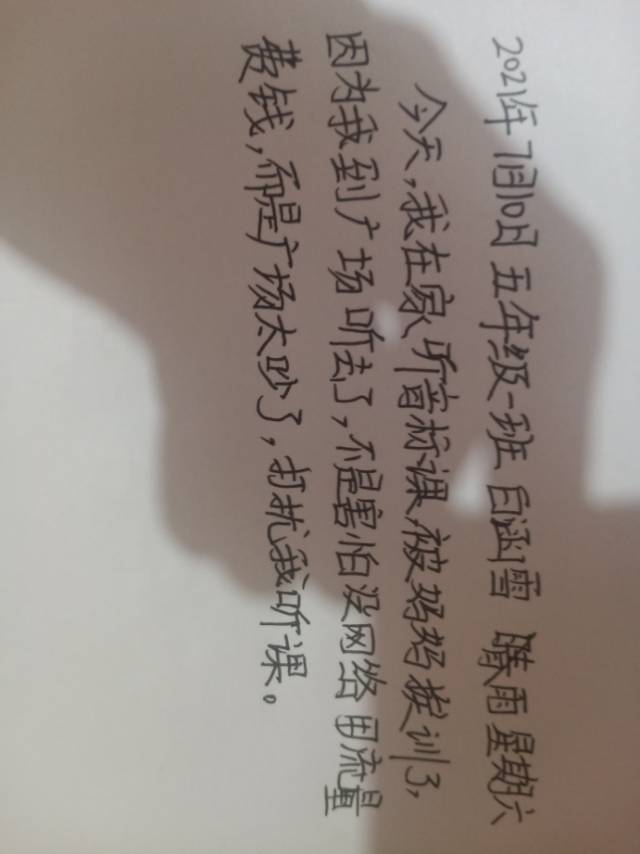 2021年7月10日 五年级一班 白涵雪 雨 星期六
今天,我在家听音标课,被妈妈挨训了,
因为我到广场听去了,不是害怕没网络用流量
费钱,而是广场太吵了,打扰我听课。